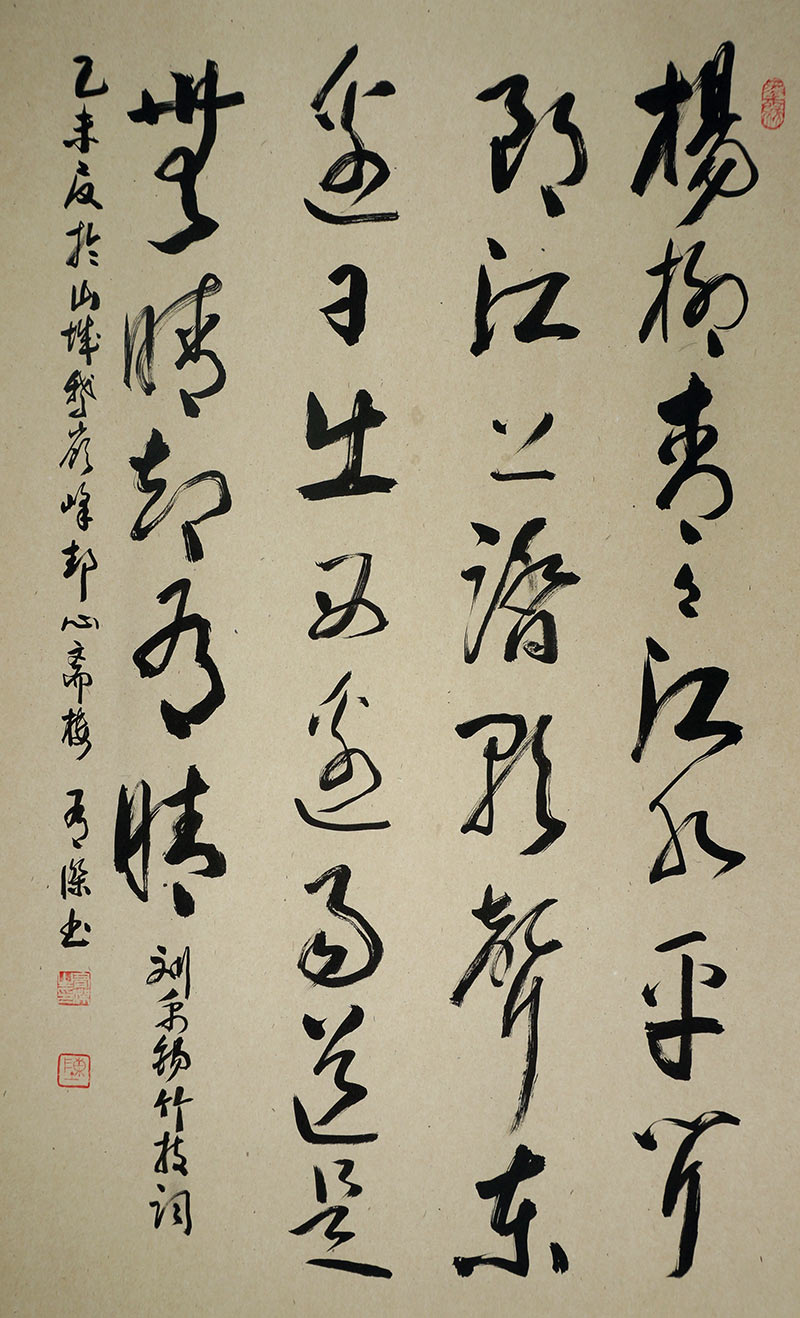 楊柳青々江水平聞
郎江上踏歌聲東
邊日出西邊雨道是
無晴却有晴 劉禹錫竹枝詞
乙未夏於山城鵝嶺峰却心斋楼 有书